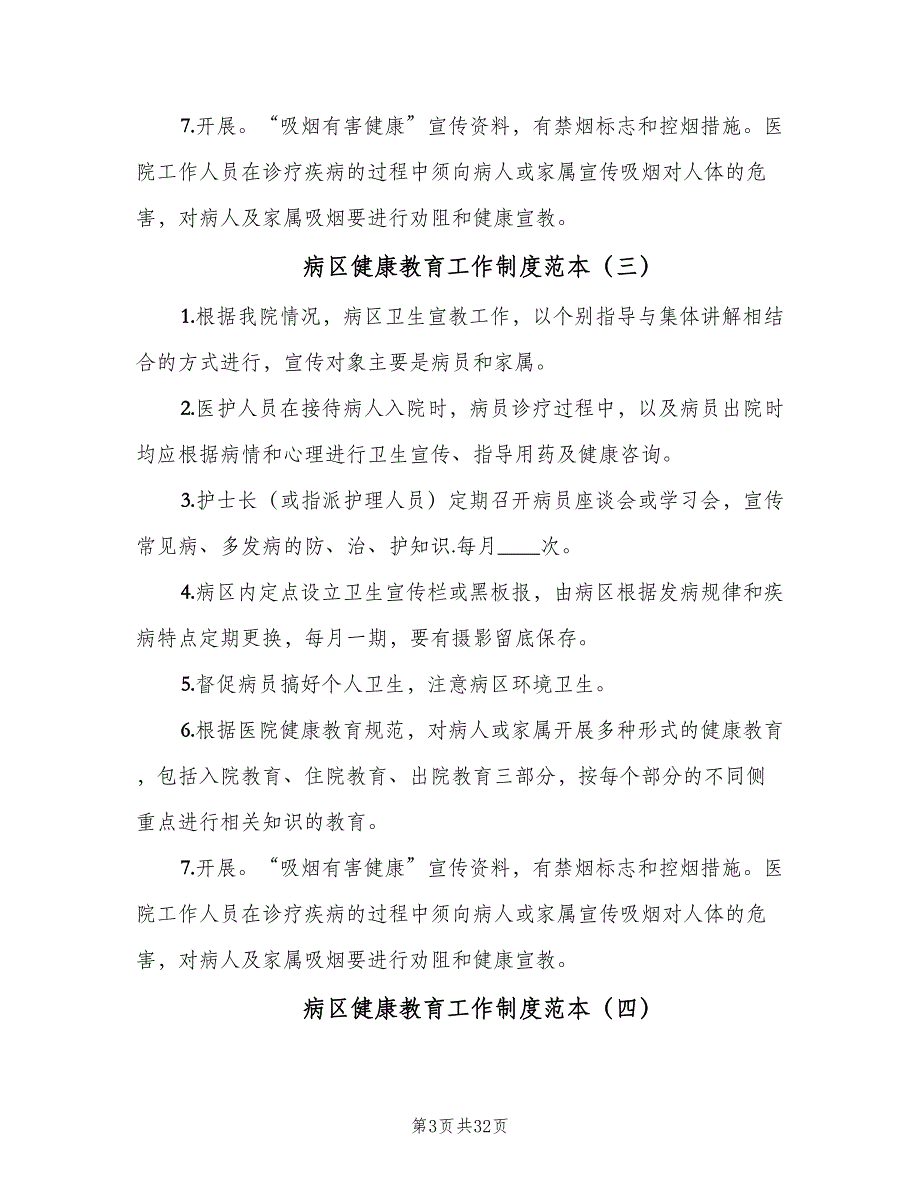 7.开展。“吸烟有害健康”宣传资料，有禁烟标志和控烟措施。医
院工作人员在诊疗疾病的过程中须向病人或家属宣传吸烟对人体的危
害，对病人及家属吸烟要进行劝阻和健康宣教。
病区健康教育工作制度范本（三）
1.根据我院情况，病区卫生宣教工作，以个别指导与集体讲解相结
合的方式进行，宣传对象主要是病员和家属。
2.医护人员在接待病人入院时，病员诊疗过程中，以及病员出院时
均应根据病情和心理进行卫生宣传、指导用药及健康咨询。
3.护士长（或指派护理人员）定期召开病员座谈会或学习会，宣传
常见病、多发病的防、治、护知识.每月____次。
4.病区内定点设立卫生宣传栏或黑板报，由病区根据发病规律和疾
病特点定期更换，每月一期，要有摄影留底保存。
5.督促病员搞好个人卫生，注意病区环境卫生。
6.根据医院健康教育规范，对病人或家属开展多种形式的健康教育
，包括入院教育、住院教育、出院教育三部分，按每个部分的不同侧
重点进行相关知识的教育。
7.开展。“吸烟有害健康”宣传资料，有禁烟标志和控烟措施。医
院工作人员在诊疗疾病的过程中须向病人或家属宣传吸烟对人体的危
害，对病人及家属吸烟要进行劝阻和健康宣教。
病区健康教育工作制度范本（四）
第3页共32页